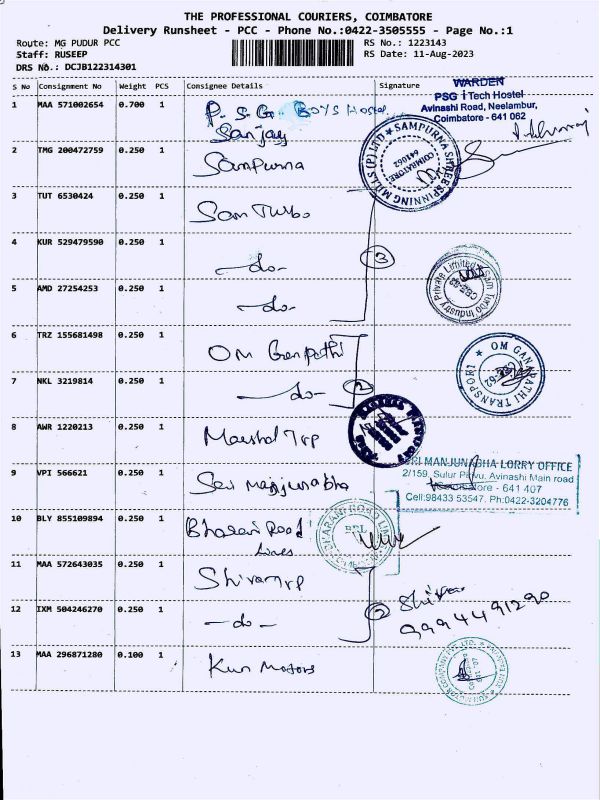 THE PROFESSIONAL COURIERS, COIMBATORE
Delivery Runsheet - PCC - Phone No.:0422-3505555 - Page No.:1
Route: MG PUDUR PCC RS No.: 1223143
Staff: RUSEEP RS Date: 11-Aug-2023
DRS No.: DCJB122314301
S No Consignment No Weight PCS Consignee Details Signature
WARDEN
PSG iTech Hostel
Avinashi Road, Neelambur,
Coimbatore - 641 062
1 MAA 571002654 0.700 1 P.S.G. BOYS Hostel
Sanjay
2 TMG 200472759 0.250 1 Sampurna
SAMPURNA SHREE SPINNING MILLS (P) LTD
COIMBATORE
641062
3 TUT 6530424 0.250 1 Sam Turbo
4 KUR 529479590 0.250 1 -do- 3
5 AMD 27254253 0.250 1 -do-
Sam Turbo Industry Private Limited
6 TRZ 155681498 0.250 1 OM Ganpathi
OM GANAPATHI TRANSPORT
7 NKL 3219814 0.250 1 -do- 2
8 AWR 1220213 0.250 1
9 VPI 566621 0.250 1 Sri manjunabha
SRI MANJUNABHA LORRY OFFICE
2/159, Sulur Pirivu, Avinashi Main road
Coimbatore - 641 407
Cell:98433 53547. Ph:0422-3204776
10 BLY 855109894 0.250 1 Bharani Road
Lines
BHARANI ROAD LINES
BRL
11 MAA 572643035 0.250 1 Shivam Trp
12 IXM 504246270 0.250 1 -do- 2
Shiva
9994491290
13 MAA 296871280 0.100 1 Kun Motors